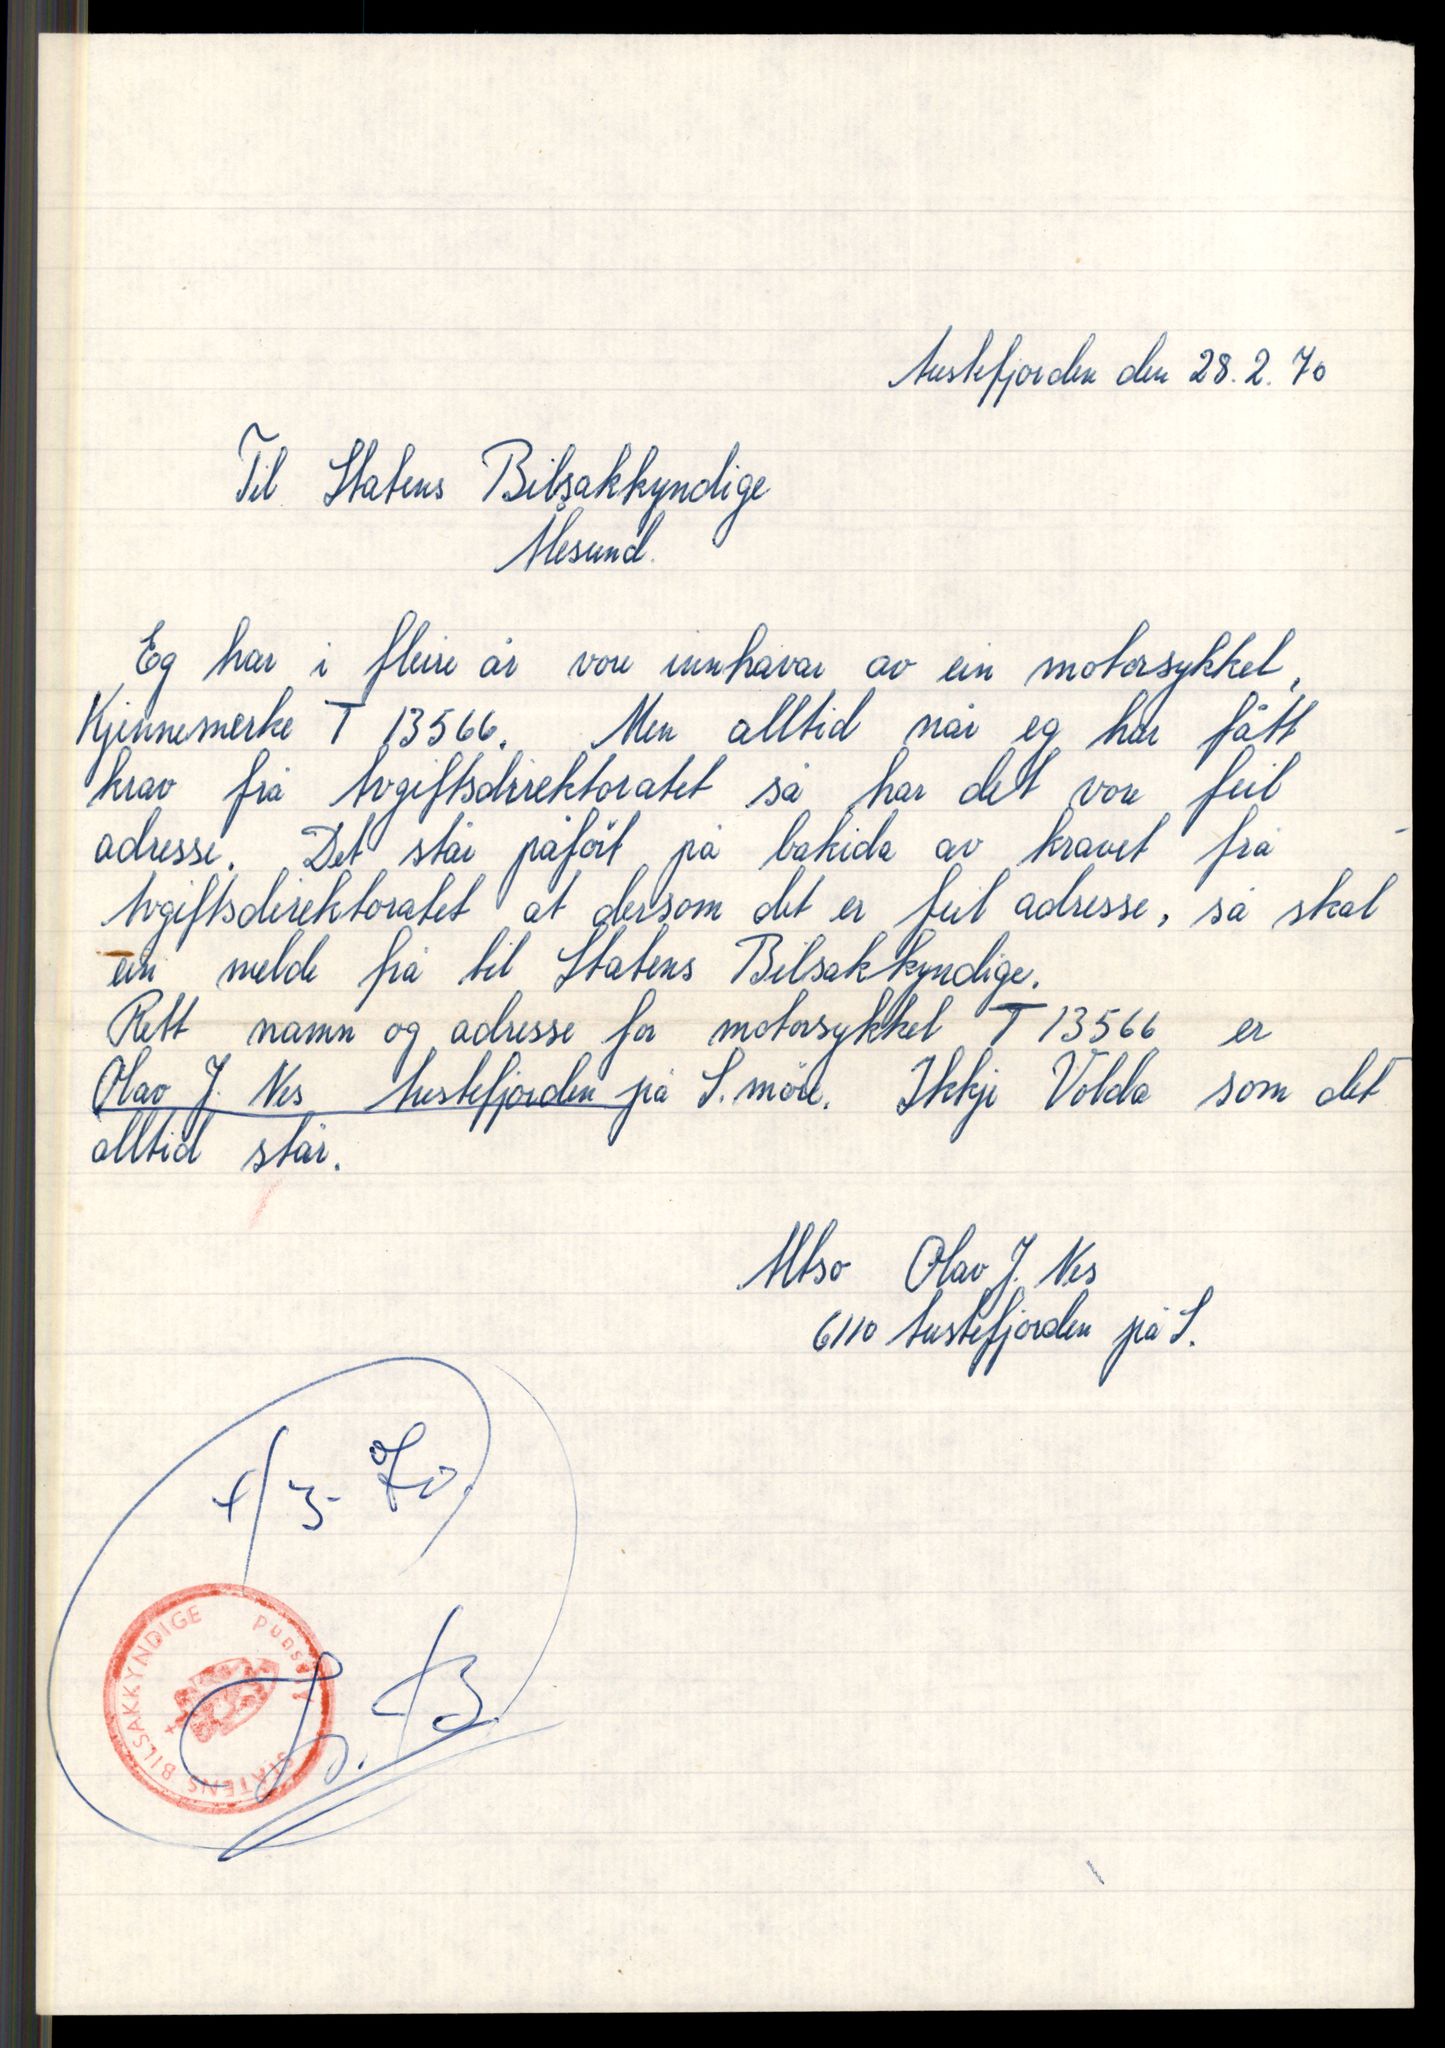 Austefjorden den 28.2.70
Til Statens Bilsakkyndige
Ålesund.
Eg har i fleire år vore innhavar av ein motorsykkel,
Kjennemerke T 13566. Men alltid når eg har fått
krav frå Avgiftsdirektoratet så har det vore feil
adresse. Det står påfört på baksida av kravet frå
Avgiftsdirektoratet at dersom det er feil adresse, så skal
ein melde frå til Statens Bilsakkyndige.
Rett namn og adresse for motorsykkel T 13566 er
Olav J. Nes Austefjorden på S. möre. Ikkje Volda som det
alltid står.
Altso Olav J. Nes
6110 Austefjorden på S.
4/3-70.
STATENS BILSAKKYNDIGE Ålesund